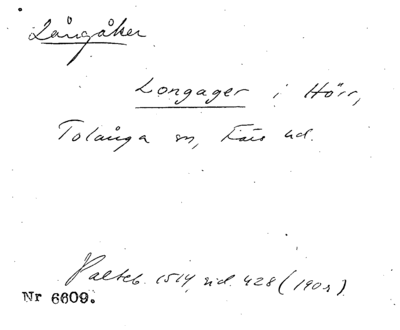 Långåker
Longager i Hörr,
Tolånga sn, Färs hd.
Palteb. 1514, sid. 428 (190r).
Nr 6609.